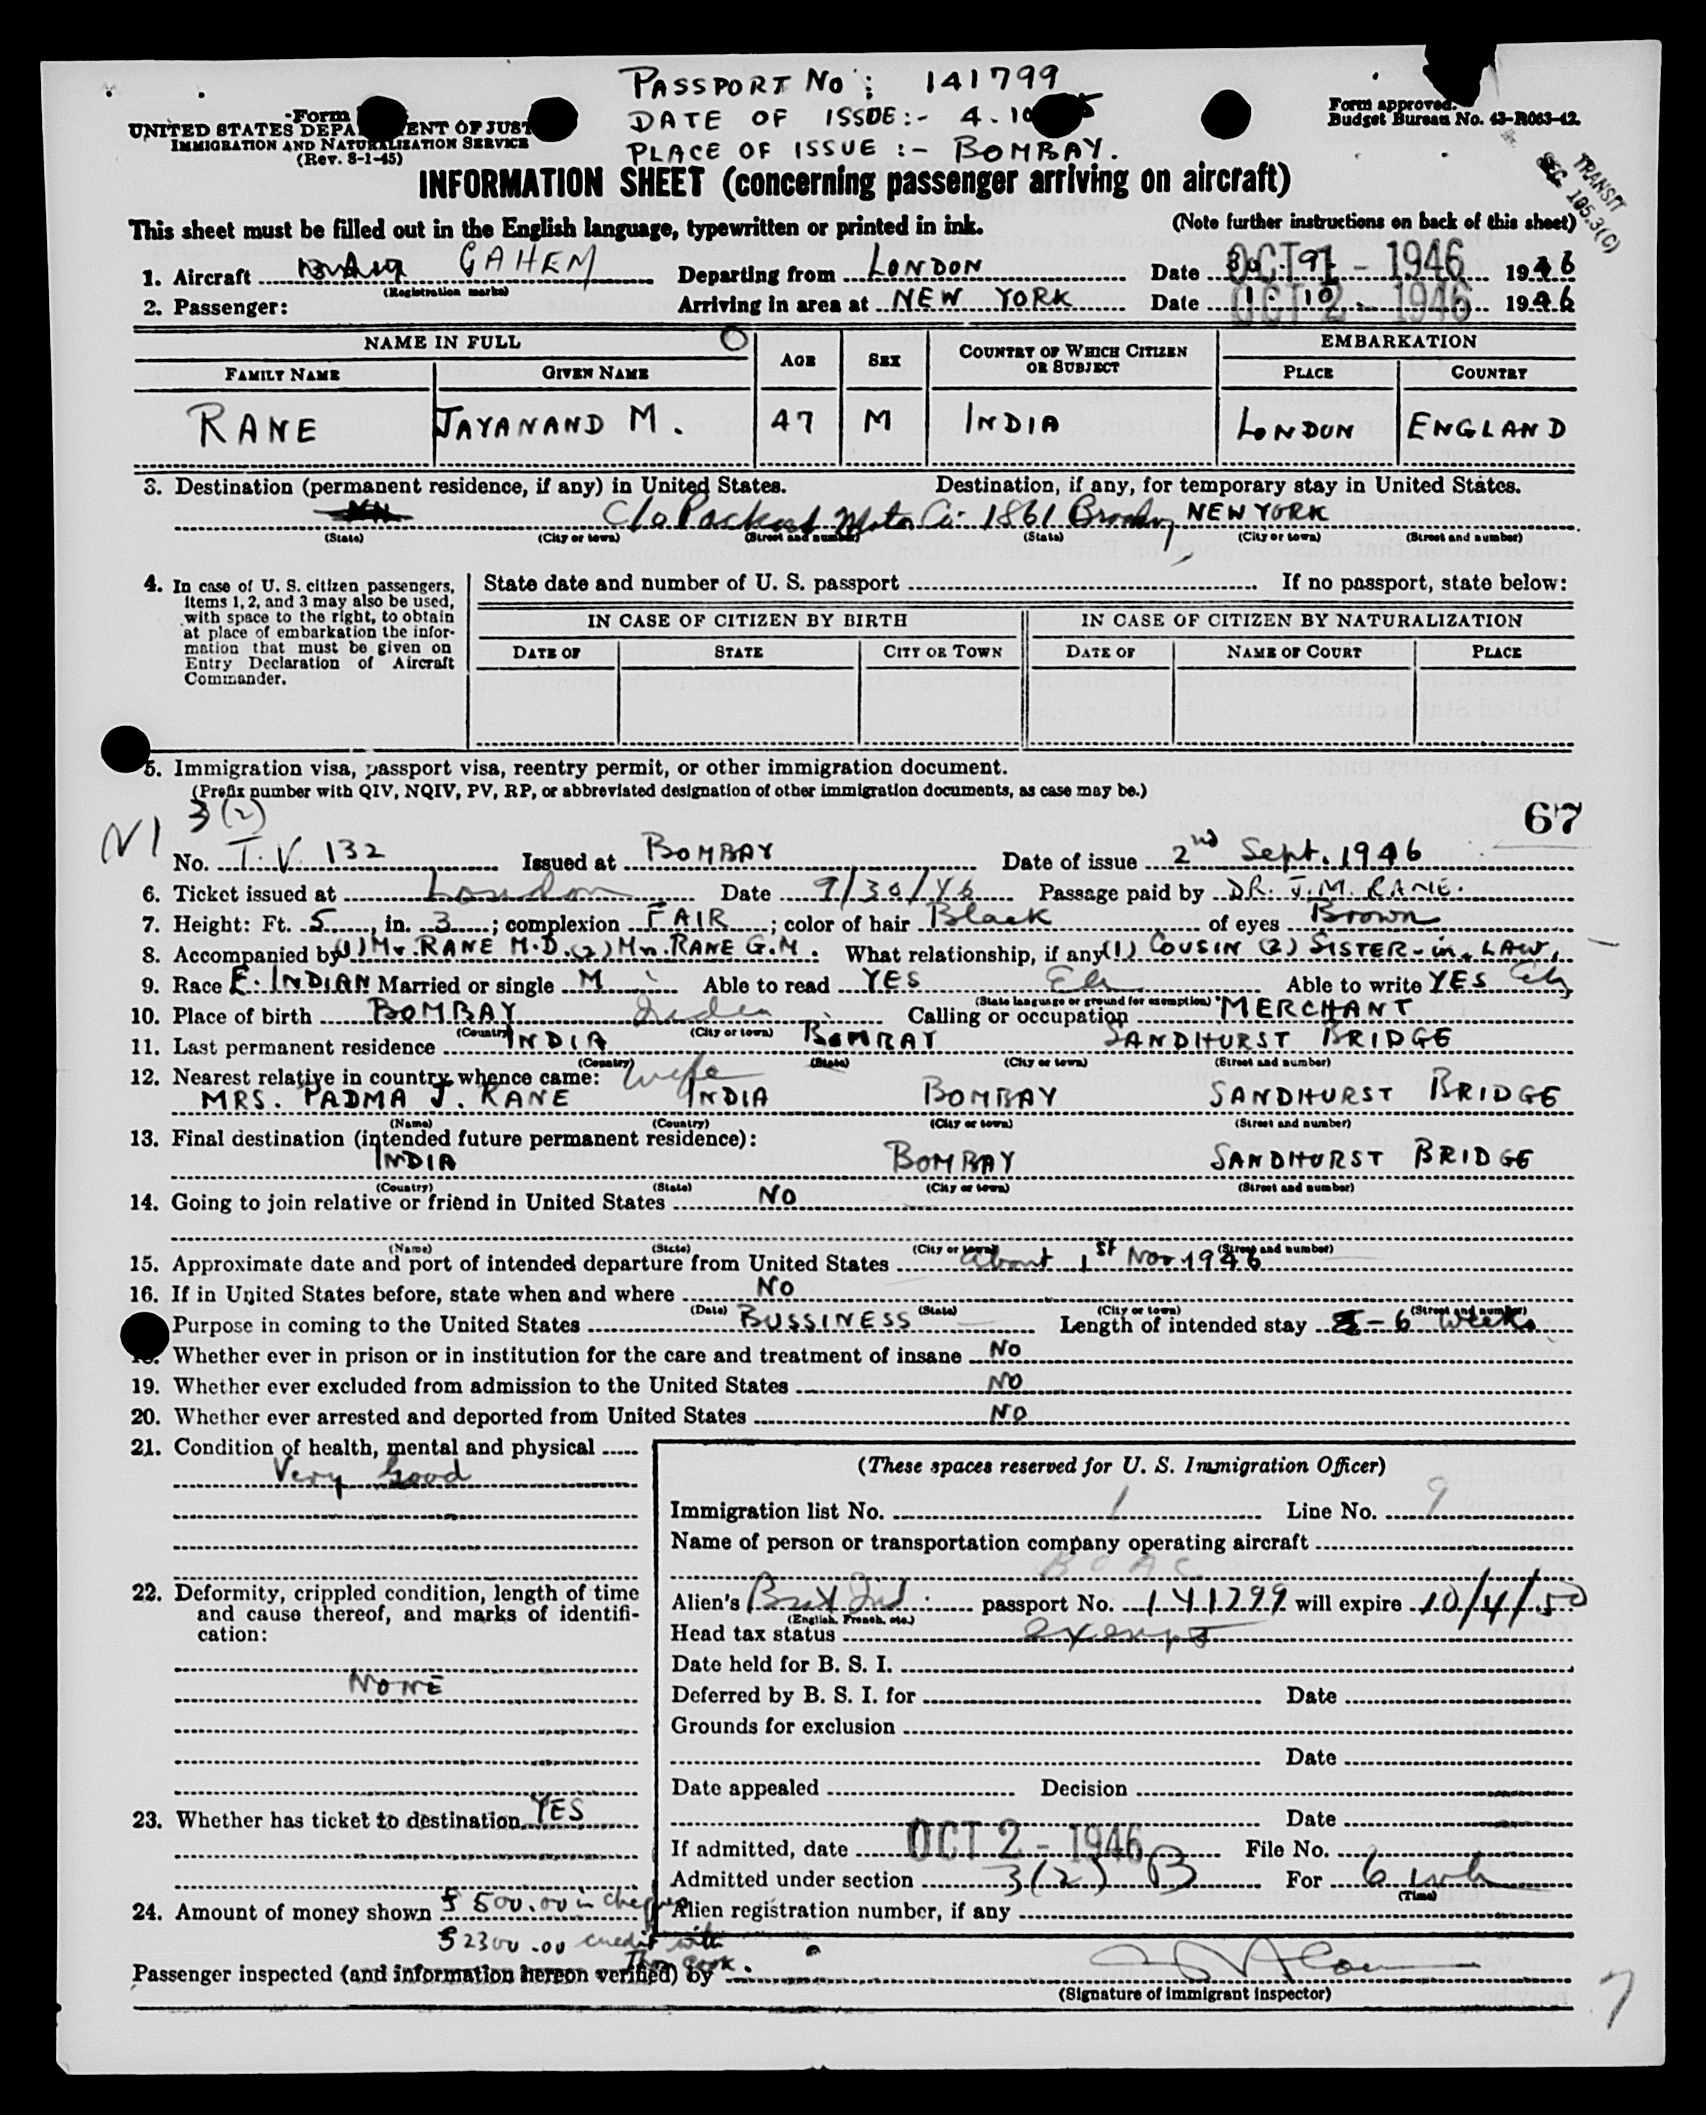 PASSPORT No : 141799
DATE OF ISSUE :- 4.10
PLACE OF ISSUE :- BOMBAY.
Form
UNITED STATES DEPA ENT OF JUST
IMMIGRATION AND NATURALIZATION SERVICE
(Rev. 8-1-45)
Form approved.
Budget Bureau No. 43-R063-42.
TRANSIT
SEC. 105.3(C)
INFORMATION SHEET (concerning passenger arriving on aircraft)
This sheet must be filled out in the English language, typewritten or printed in ink. (Note further instructions on back of this sheet)
1. Aircraft GAHEM Departing from LONDON Date 30 . 9 OCT 1 - 1946 1946
(Registration marks)
2. Passenger: Arriving in area at NEW YORK Date 1 . 10 . OCT 2 1946 1946
NAME IN FULL AGE SEX COUNTRY OF WHICH CITIZEN OR SUBJECT EMBARKATION
FAMILY NAME GIVEN NAME PLACE COUNTRY
RANE JAYANAND M. 47 M INDIA LONDON ENGLAND
3. Destination (permanent residence, if any) in United States. Destination, if any, for temporary stay in United States.
C/o Packard Motor Co. 1861 Brodwy NEW YORK
(State) (City or town) (Street and number) (State) (City or town) (Street and number)
4. In case of U. S. citizen passengers, items 1, 2, and 3 may also be used, with space to the right, to obtain at place of embarkation the information that must be given on Entry Declaration of Aircraft Commander.
State date and number of U. S. passport If no passport, state below:
IN CASE OF CITIZEN BY BIRTH IN CASE OF CITIZEN BY NATURALIZATION
DATE OF STATE CITY OR TOWN DATE OF NAME OF COURT PLACE
5. Immigration visa, passport visa, reentry permit, or other immigration document.
(Prefix number with QIV, NQIV, PV, RP, or abbreviated designation of other immigration documents, as case may be.)
3(2)
67
N1
No. T. V. 132 Issued at BOMBAY Date of issue 2nd Sept. 1946
6. Ticket issued at London Date 9/30/46 Passage paid by DR. J. M. RANE.
7. Height: Ft. 5, in. 3; complexion FAIR; color of hair Black of eyes Brown
8. Accompanied by (1) Mr. RANE M.D. (2) Mrs. RANE G.M. What relationship, if any (1) COUSIN (2) SISTER-in-LAW.
9. Race E. INDIAN Married or single M Able to read YES Eng Able to write YES Eng
(State language or ground for exemption)
10. Place of birth BOMBAY India Calling or occupation MERCHANT
(Country) (City or town)
11. Last permanent residence INDIA BOMBAY SANDHURST BRIDGE
(Country) (State) (City or town) (Street and number)
12. Nearest relative in country whence came: wife
MRS. PADMA J. RANE INDIA BOMBAY SANDHURST BRIDGE
(Name) (Country) (City or town) (Street and number)
13. Final destination (intended future permanent residence):
INDIA BOMBAY SANDHURST BRIDGE
(Country) (State) (City or town) (Street and number)
14. Going to join relative or friend in United States NO
(Name) (State) (City or town) (Street and number)
15. Approximate date and port of intended departure from United States about 1st Nov 1946
16. If in United States before, state when and where NO
(Date) (State) (City or town) (Street and number)
Purpose in coming to the United States BUSSINESS Length of intended stay 5-6 weeks
18. Whether ever in prison or in institution for the care and treatment of insane No
19. Whether ever excluded from admission to the United States NO
20. Whether ever arrested and deported from United States NO
21. Condition of health, mental and physical
Very Good
22. Deformity, crippled condition, length of time and cause thereof, and marks of identification:
NONE
23. Whether has ticket to destination YES
24. Amount of money shown $ 500.00 in cheques
$ 2300.00 credit with
Thos Cook.
(These spaces reserved for U. S. Immigration Officer)
Immigration list No. 1 Line No. 9
Name of person or transportation company operating aircraft
BOAC
Alien's Brit Ind passport No. 141799 will expire 10/4/50
(English, French, etc.)
Head tax status exempt
Date held for B. S. I.
Deferred by B. S. I. for Date
Grounds for exclusion
Date
Date appealed Decision
Date
If admitted, date OCT 2 - 1946 File No.
Admitted under section 3(2) B For 6 wk
(Time)
Alien registration number, if any
Passenger inspected (and information hereon verified) by
(Signature of immigrant inspector)
7